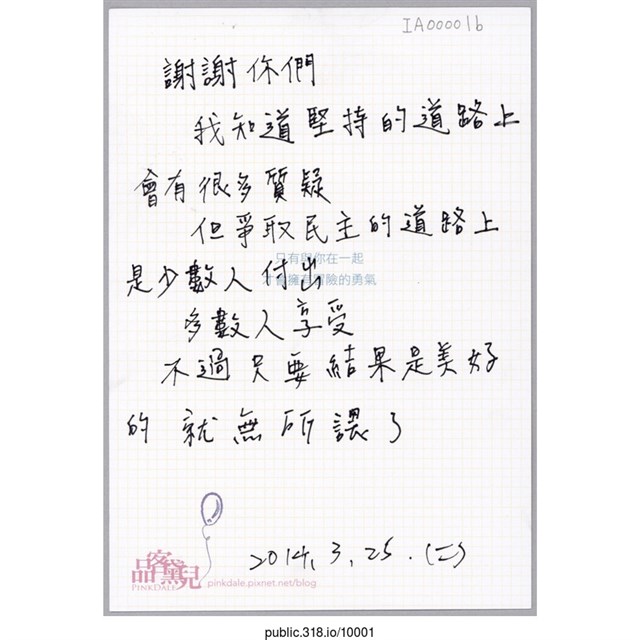 IA00001b
謝謝你們
我知道堅持的道路上
會有很多質疑
但爭取民主的道路上
只有與你在一起
是少數人付出
才會擁有冒險的勇氣
多數人享受
不過只要結果是美好
的就無所謂了
2014.3.25.(二)
品客黛兒
PINKDALE
pinkdale.pixnet.net/blog
public.318.io/10001